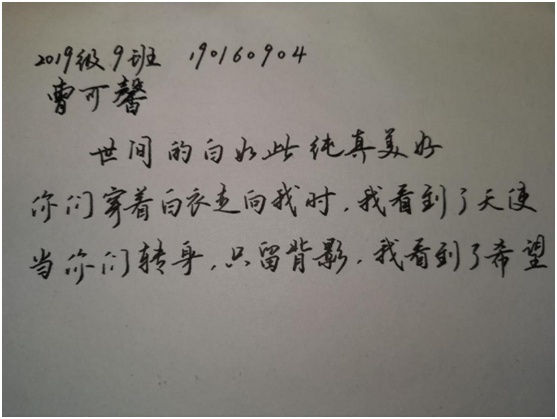 2019级9班 190160904
曹可馨
世间的白如此纯真美好
你们穿着白衣走向我时，我看到了天使
当你们转身，只留背影，我看到了希望